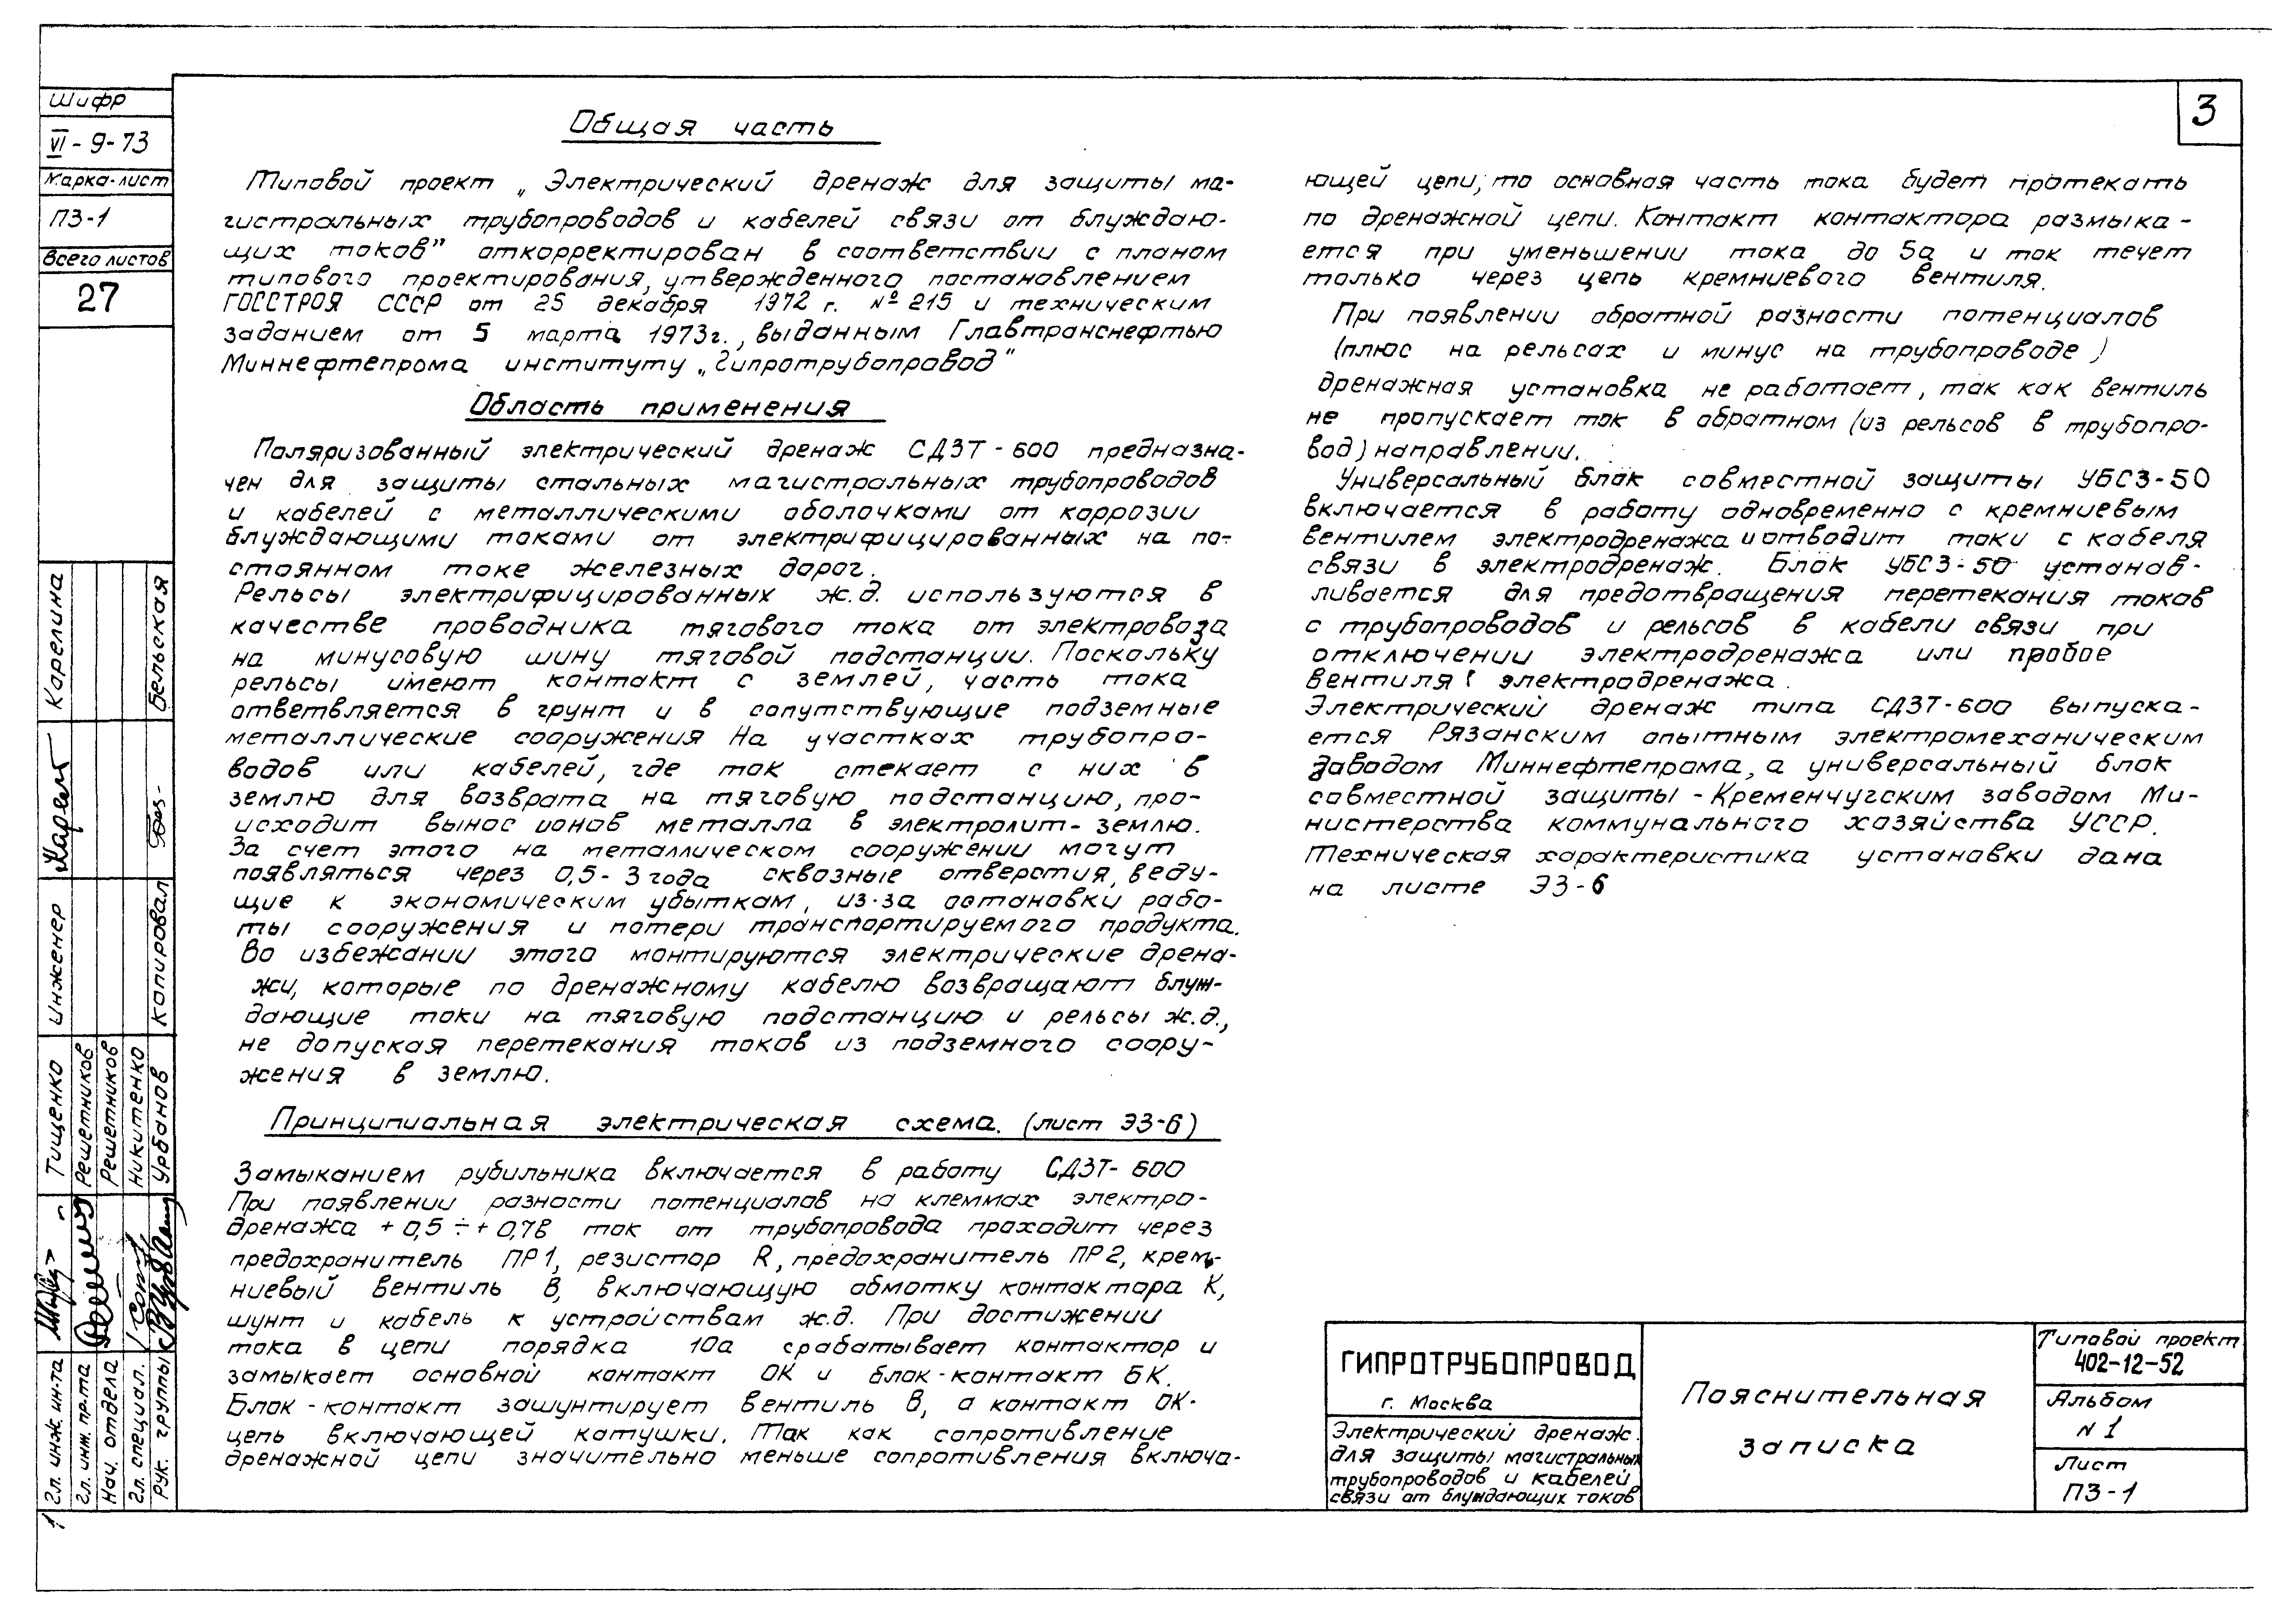 3
Шифр
VI - 9-73
Марка-лист
ПЗ-1
Всего листов
27
Общая часть
Типовой проект „Электрический дренаж для защиты ма-
гистральных трубопроводов и кабелей связи от блуждаю-
щих токов" откорректирован в соответствии с планом
типового проектирования, утвержденного постановлением
ГОССТРОЯ СССР от 25 декабря 1972 г. № 215 и техническим
заданием от 5 марта 1973г., выданным Главтранснефтью
Миннефтепрома институту „Гипротрубопровод"
Область применения
Поляризованный электрический дренаж СДЗТ-600 предназна-
чен для защиты стальных магистральных трубопроводов
и кабелей с металлическими оболочками от коррозии
блуждающими токами от электрифицированных на по-
стоянном токе железных дорог.
Рельсы электрифицированных ж.д. используются в
качестве проводника тягового тока от электровоза
на минусовую шину тяговой подстанции. Поскольку
рельсы имеют контакт с землей, часть тока
ответвляется в грунт и в сопутствующие подземные
металлические сооружения На участках трубопро-
водов или кабелей, где ток стекает с них в
землю для возврата на тяговую подстанцию, про-
исходит вынос ионов металла в электролит-землю.
За счет этого на металлическом сооружении могут
появляться через 0,5-3 года сквозные отверстия, веду-
щие к экономическим убыткам, из-за остановки рабо-
ты сооружения и потери транспортируемого продукта.
Во избежании этого монтируются электрические дрена-
жи, которые по дренажному кабелю возвращают блуж-
дающие токи на тяговую подстанцию и рельсы ж.д.,
не допуская перетекания токов из подземного соору-
жения в землю.
Принципиальная электрическая схема. (лист ЭЗ-6)
Замыканием рубильника включается в работу СДЗТ-600
При появлении разности потенциалов на клеммах электро-
дренажа +0,5÷+0,7в ток от трубопровода проходит через
предохранитель ПР1, резистор R, предохранитель ПР2, крем-
ниевый вентиль В, включающую обмотку контактора К,
шунт и кабель к устройствам ж.д. При достижении
тока в цепи порядка 10а срабатывает контактор и
замыкает основной контакт ОК и блок-контакт БК.
Блок-контакт зашунтирует вентиль В, а контакт ОК-
цепь включающей катушки. Так как сопротивление
дренажной цепи значительно меньше сопротивления включа-
ющей цепи, то основная часть тока будет протекать
по дренажной цепи. Контакт контактора размыка-
ется при уменьшении тока до 5а и ток течет
только через цепь кремниевого вентиля.
При появлении обратной разности потенциалов
(плюс на рельсах и минус на трубопроводе)
дренажная установка не работает, так как вентиль
не пропускает ток в обратном (из рельсов в трубопро-
вод) направлении.
Универсальный блок совместной защиты УБСЗ-50
включается в работу одновременно с кремниевым
вентилем электродренажа и отводит токи с кабеля
связи в электродренаж. Блок УБСЗ-50 устанав-
ливается для предотвращения перетекания токов
с трубопроводов и рельсов в кабели связи при
отключении электродренажа или пробое
вентиля электродренажа.
Электрический дренаж типа СДЗТ-600 выпуска-
ется Рязанским опытным электромеханическим
заводом Миннефтепрома, а универсальный блок
совместной защиты - Кременчугским заводом Ми-
нистерства коммунального хозяйства УССР.
Техническая характеристика установки дана
на листе ЭЗ-6
Карелина
Бельская
Инженер
Копировал
Тищенко
Решетников
Решетников
Никитенко
Урбанов
Гл. инж. ин-та
Гл. инж. пр-та
Нач. отдела
Гл. специал.
Рук. группы
ГИПРОТРУБОПРОВОД
г. Москва
Электрический дренаж
для защиты магистральных
трубопроводов и кабелей
связи от блуждающих токов
Пояснительная
записка
Типовой проект
402-12-52
Альбом
N 1
Лист
ПЗ-1